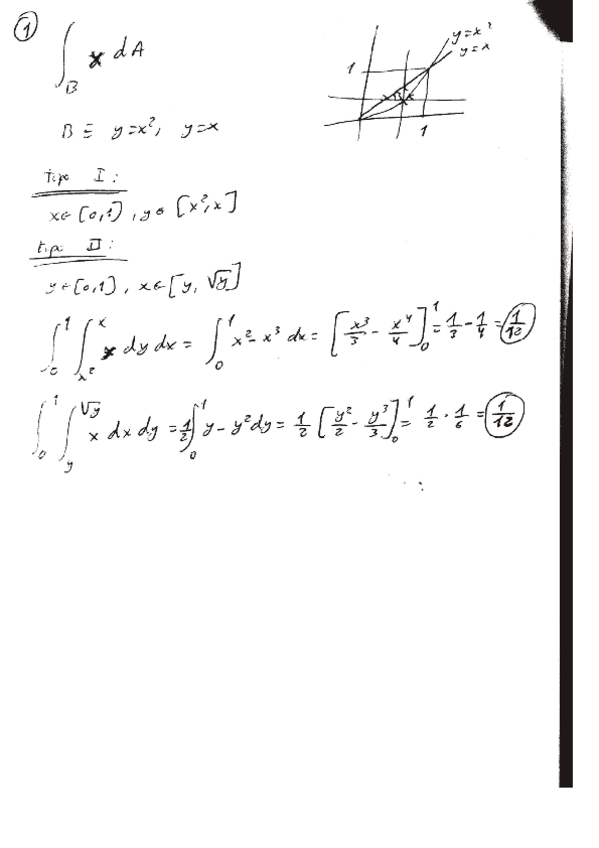 ①
∫_B x dA
y=x²
y=x
1
B
1
B ≡ y=x², y=x
tipo I:
x∈[0,1], y∈[x²,x]
tipo II:
y∈[0,1], x∈[y,√y]
∫₀¹ ∫_{x²}^{x} x dy dx = ∫₀¹ x²-x³ dx = [x³/3 - x⁴/4]₀¹ = 1/3 - 1/4 = 1/12
∫₀¹ ∫_y^{√y} x dx dy = 1/2 ∫₀¹ y-y² dy = 1/2 [y²/2 - y³/3]₀¹ = 1/2 · 1/6 = 1/12